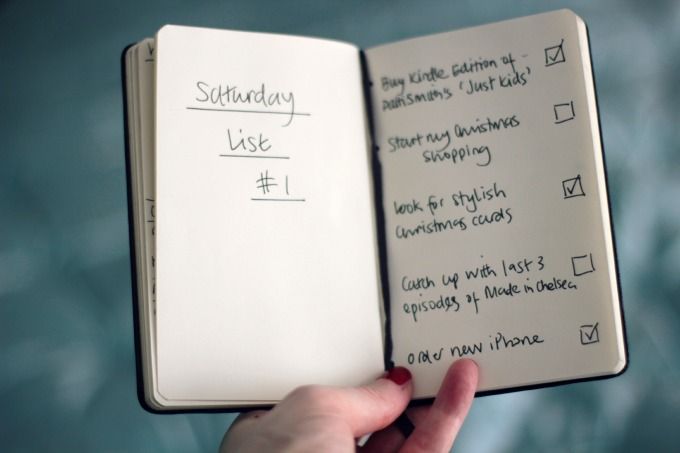 Saturday
List
#1
Buy Kindle Edition of
Patti Smith's 'Just Kids'
Start my Christmas
shopping
look for stylish
Christmas cards
Catch up with last 3
episodes of Made in Chelsea
order new iPhone